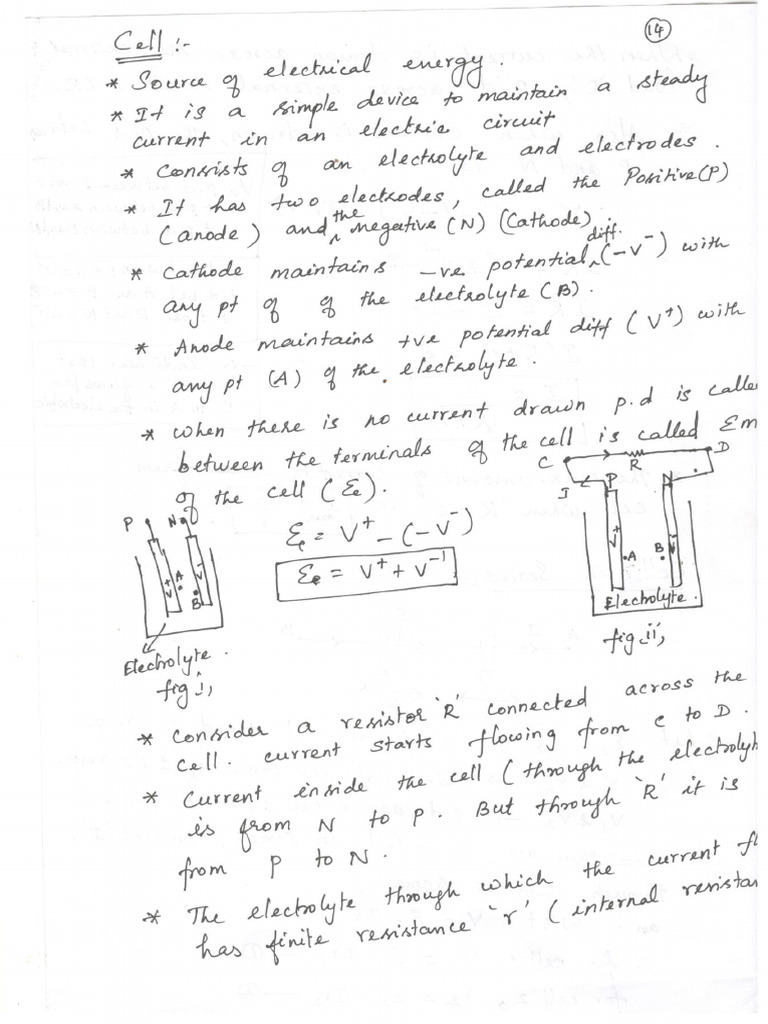 14
Cell :-
* Source of electrical energy.
* It is a simple device to maintain a steady
current in an electric circuit
* Consists of an electrolyte and electrodes.
* It has two electrodes, called the Positive(P)
(anode) and the negative (N) (Cathode).
* Cathode maintains -ve potential diff. (-V⁻) with
any pt of of the electrolyte (B).
* Anode maintains +ve potential diff (V⁺) with
any pt (A) of the electrolyte.
* When there is no current drawn p.d is calle
between the terminals of the cell is called Em
of the cell (Ɛe).
C R D
I P N
P N
Ɛe = V⁺ - (-V⁻)
Ɛe = V⁺ + V⁻¹
V + A V - B
V + A B V
Electrolyte.
fig ii,
Electrolyte.
fig i,
* Consider a resistor 'R' connected across the
cell. current starts flowing from C to D.
* Current inside the cell (through the electrolyt
is from N to P. But through 'R' it is
from P to N.
* The electrolyte through which the current fl
has finite resistance 'r' (internal resistan